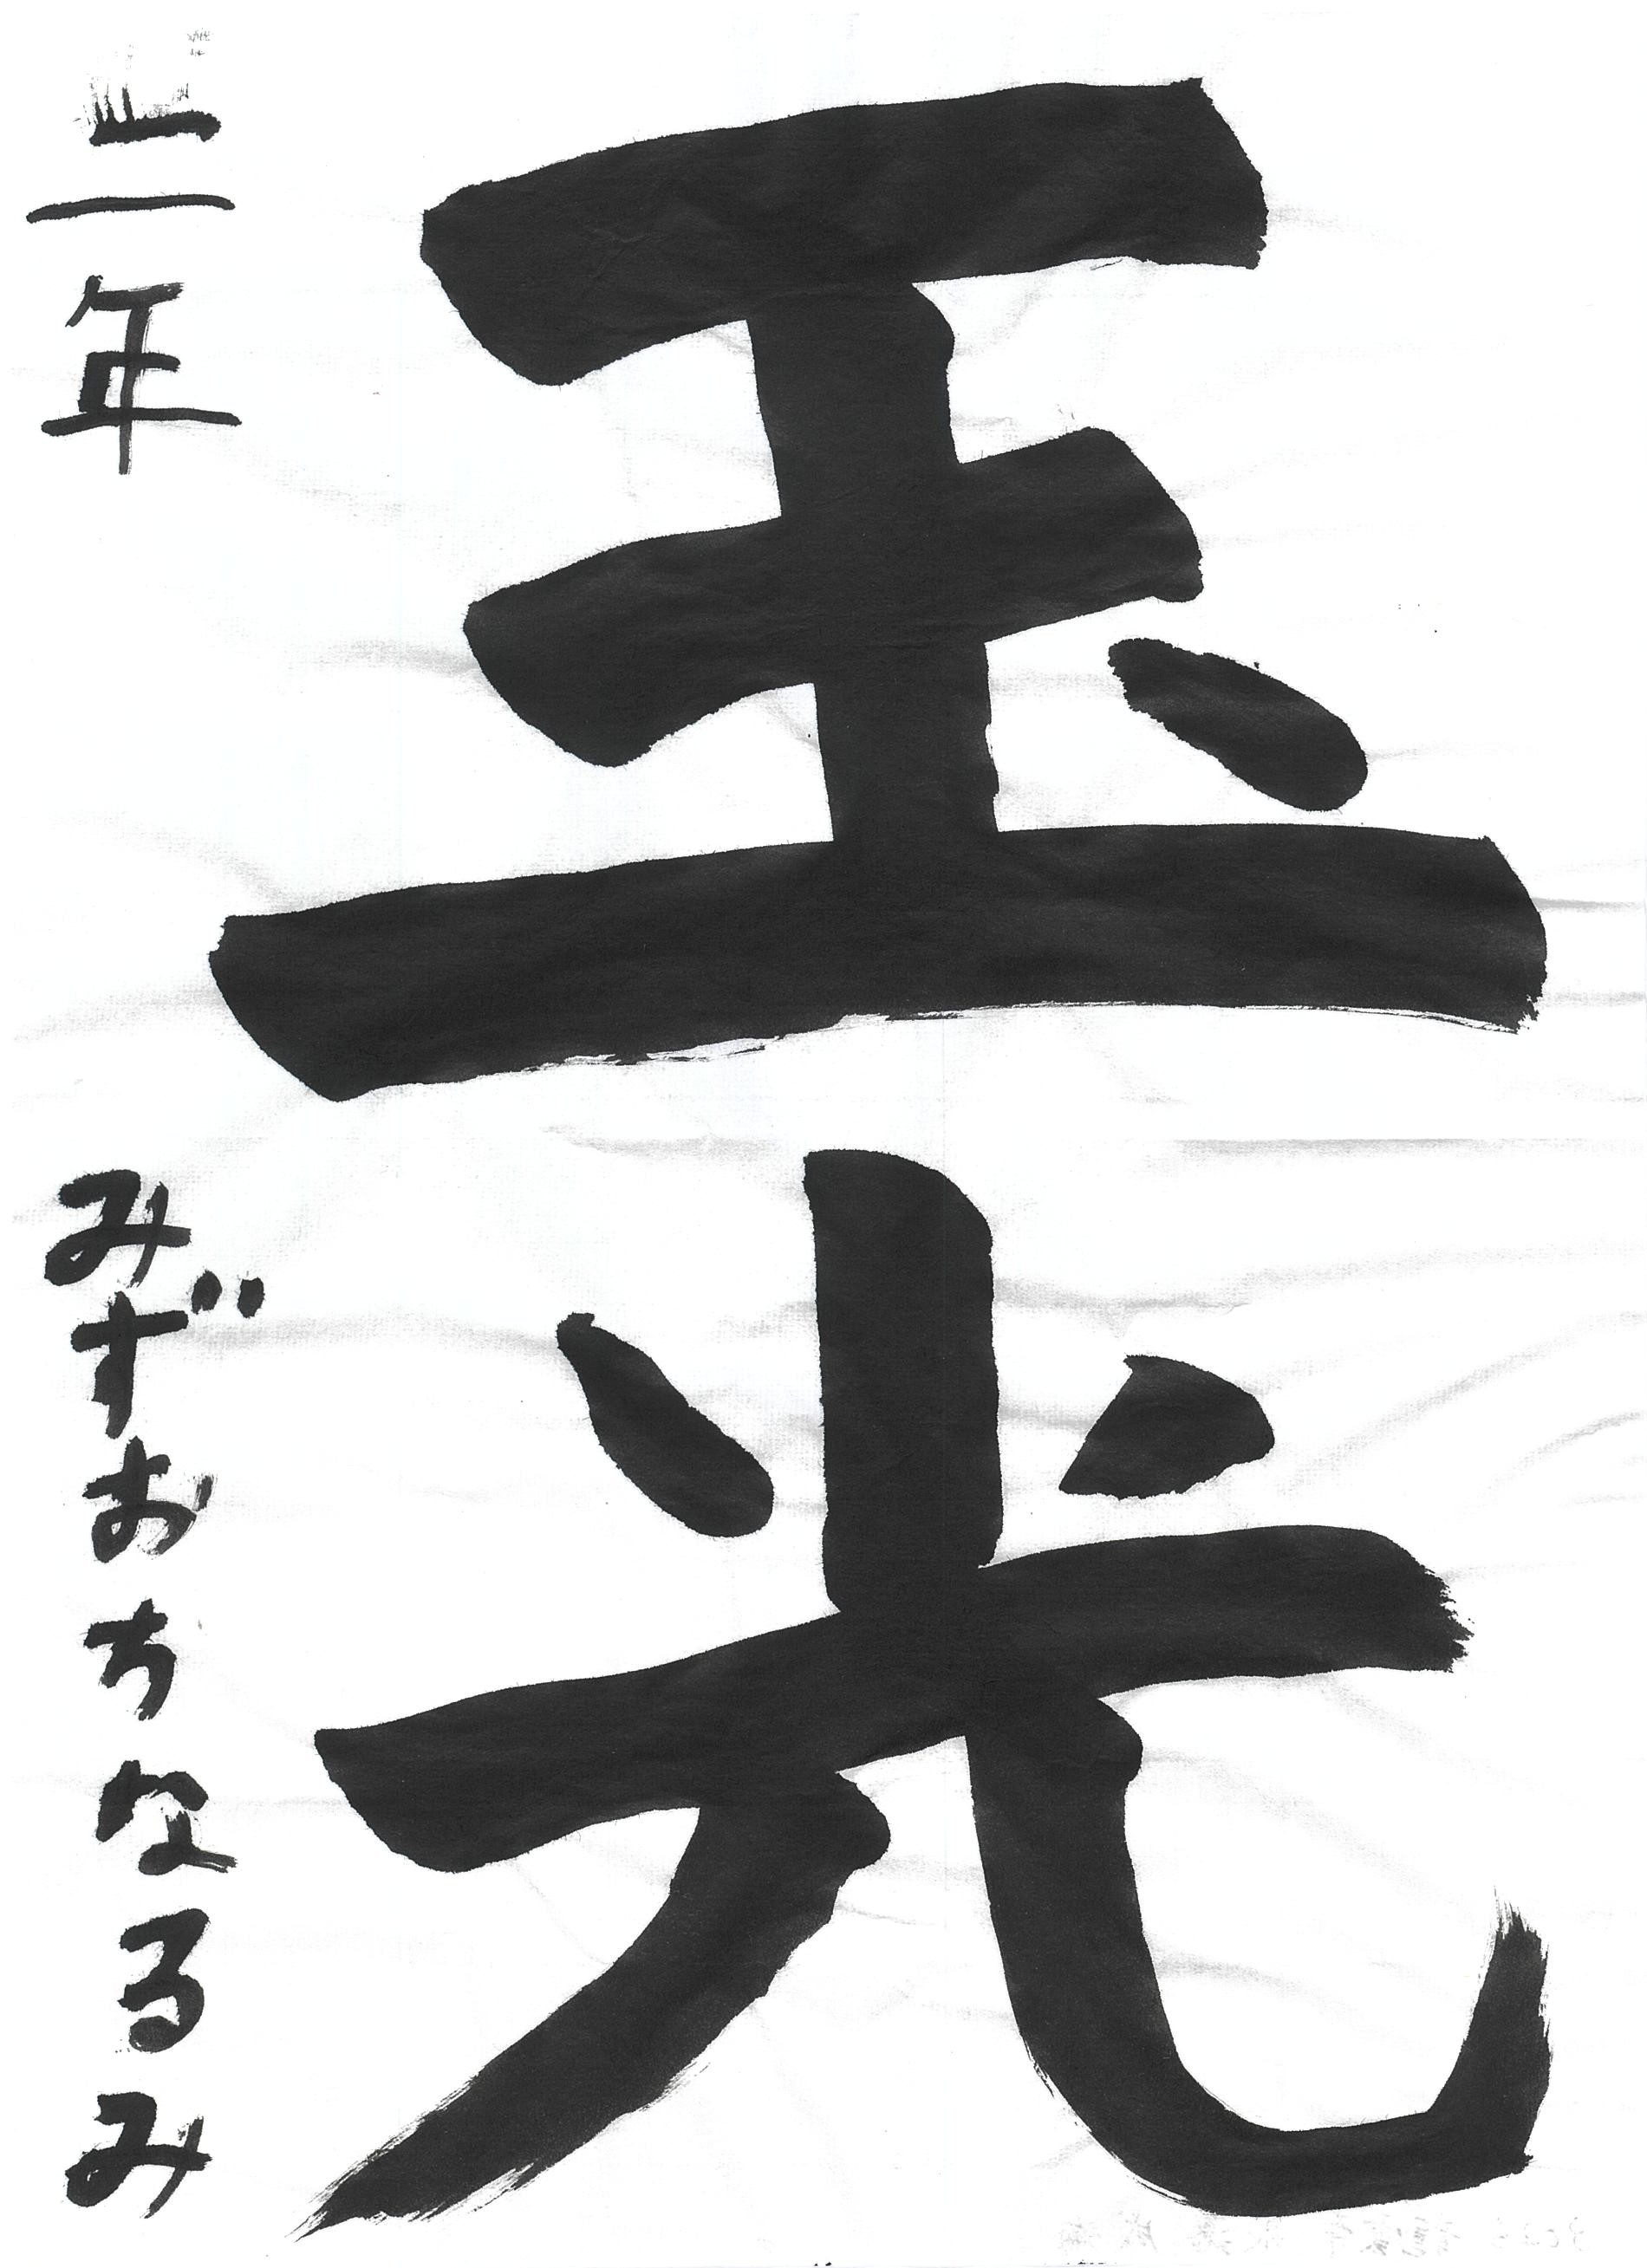 玉光
二年 みずおちなるみ